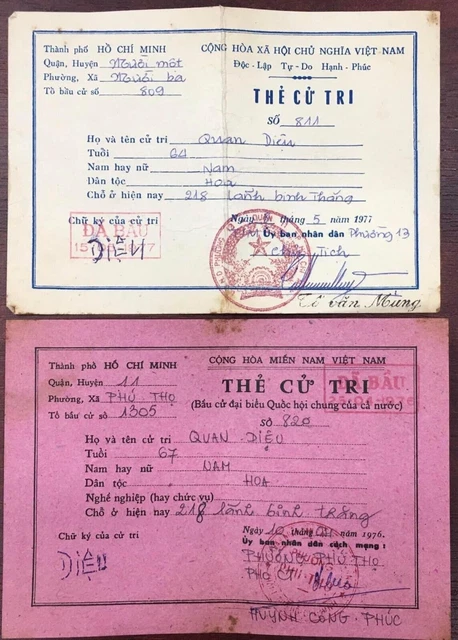 Thành phố HỒ CHÍ MINH
CỘNG HÒA XÃ HỘI CHỦ NGHĨA VIỆT NAM
Quận, Huyện Mười một
Độc-Lập Tự-Do Hạnh-Phúc
Phường, Xã Mười ba
Tổ bầu cử số 809
THẺ CỬ TRI
SỐ 811
Họ và tên cử tri Quan Diệu
Tuổi 64
Nam hay nữ Nam
Dân tộc Hoa
Chỗ ở hiện nay 218 Lãnh binh Thăng
Chữ ký của cử tri
Ngày tháng 5 năm 1977
ĐÃ BẦU
DIỆU
TM Ủy ban nhân dân Phường 13
Chủ Tịch
Tô Văn Mừng
Thành phố HỒ CHÍ MINH
CỘNG HÒA MIỀN NAM VIỆT NAM
Quận, Huyện 11
THẺ CỬ TRI
ĐÃ BẦU
25-04-1976
Phường, Xã PHÚ THỌ
(Bầu cử đại biểu Quốc hội chung của cả nước)
Tổ bầu cử số 1305
SỐ 820
Họ và tên cử tri QUAN DIỆU
Tuổi 67
Nam hay nữ NAM
Dân tộc HOA
Nghề nghiệp (hay chức vụ)
Chỗ ở hiện nay 218 lãnh binh thăng
Chữ ký của cử tri
Ngày 10 tháng năm 1976.
Ủy ban nhân dân cách mạng :
PHƯỜNG PHÚ THỌ
DIỆU
PHÓ CT
HUỲNH CÔNG PHÚC